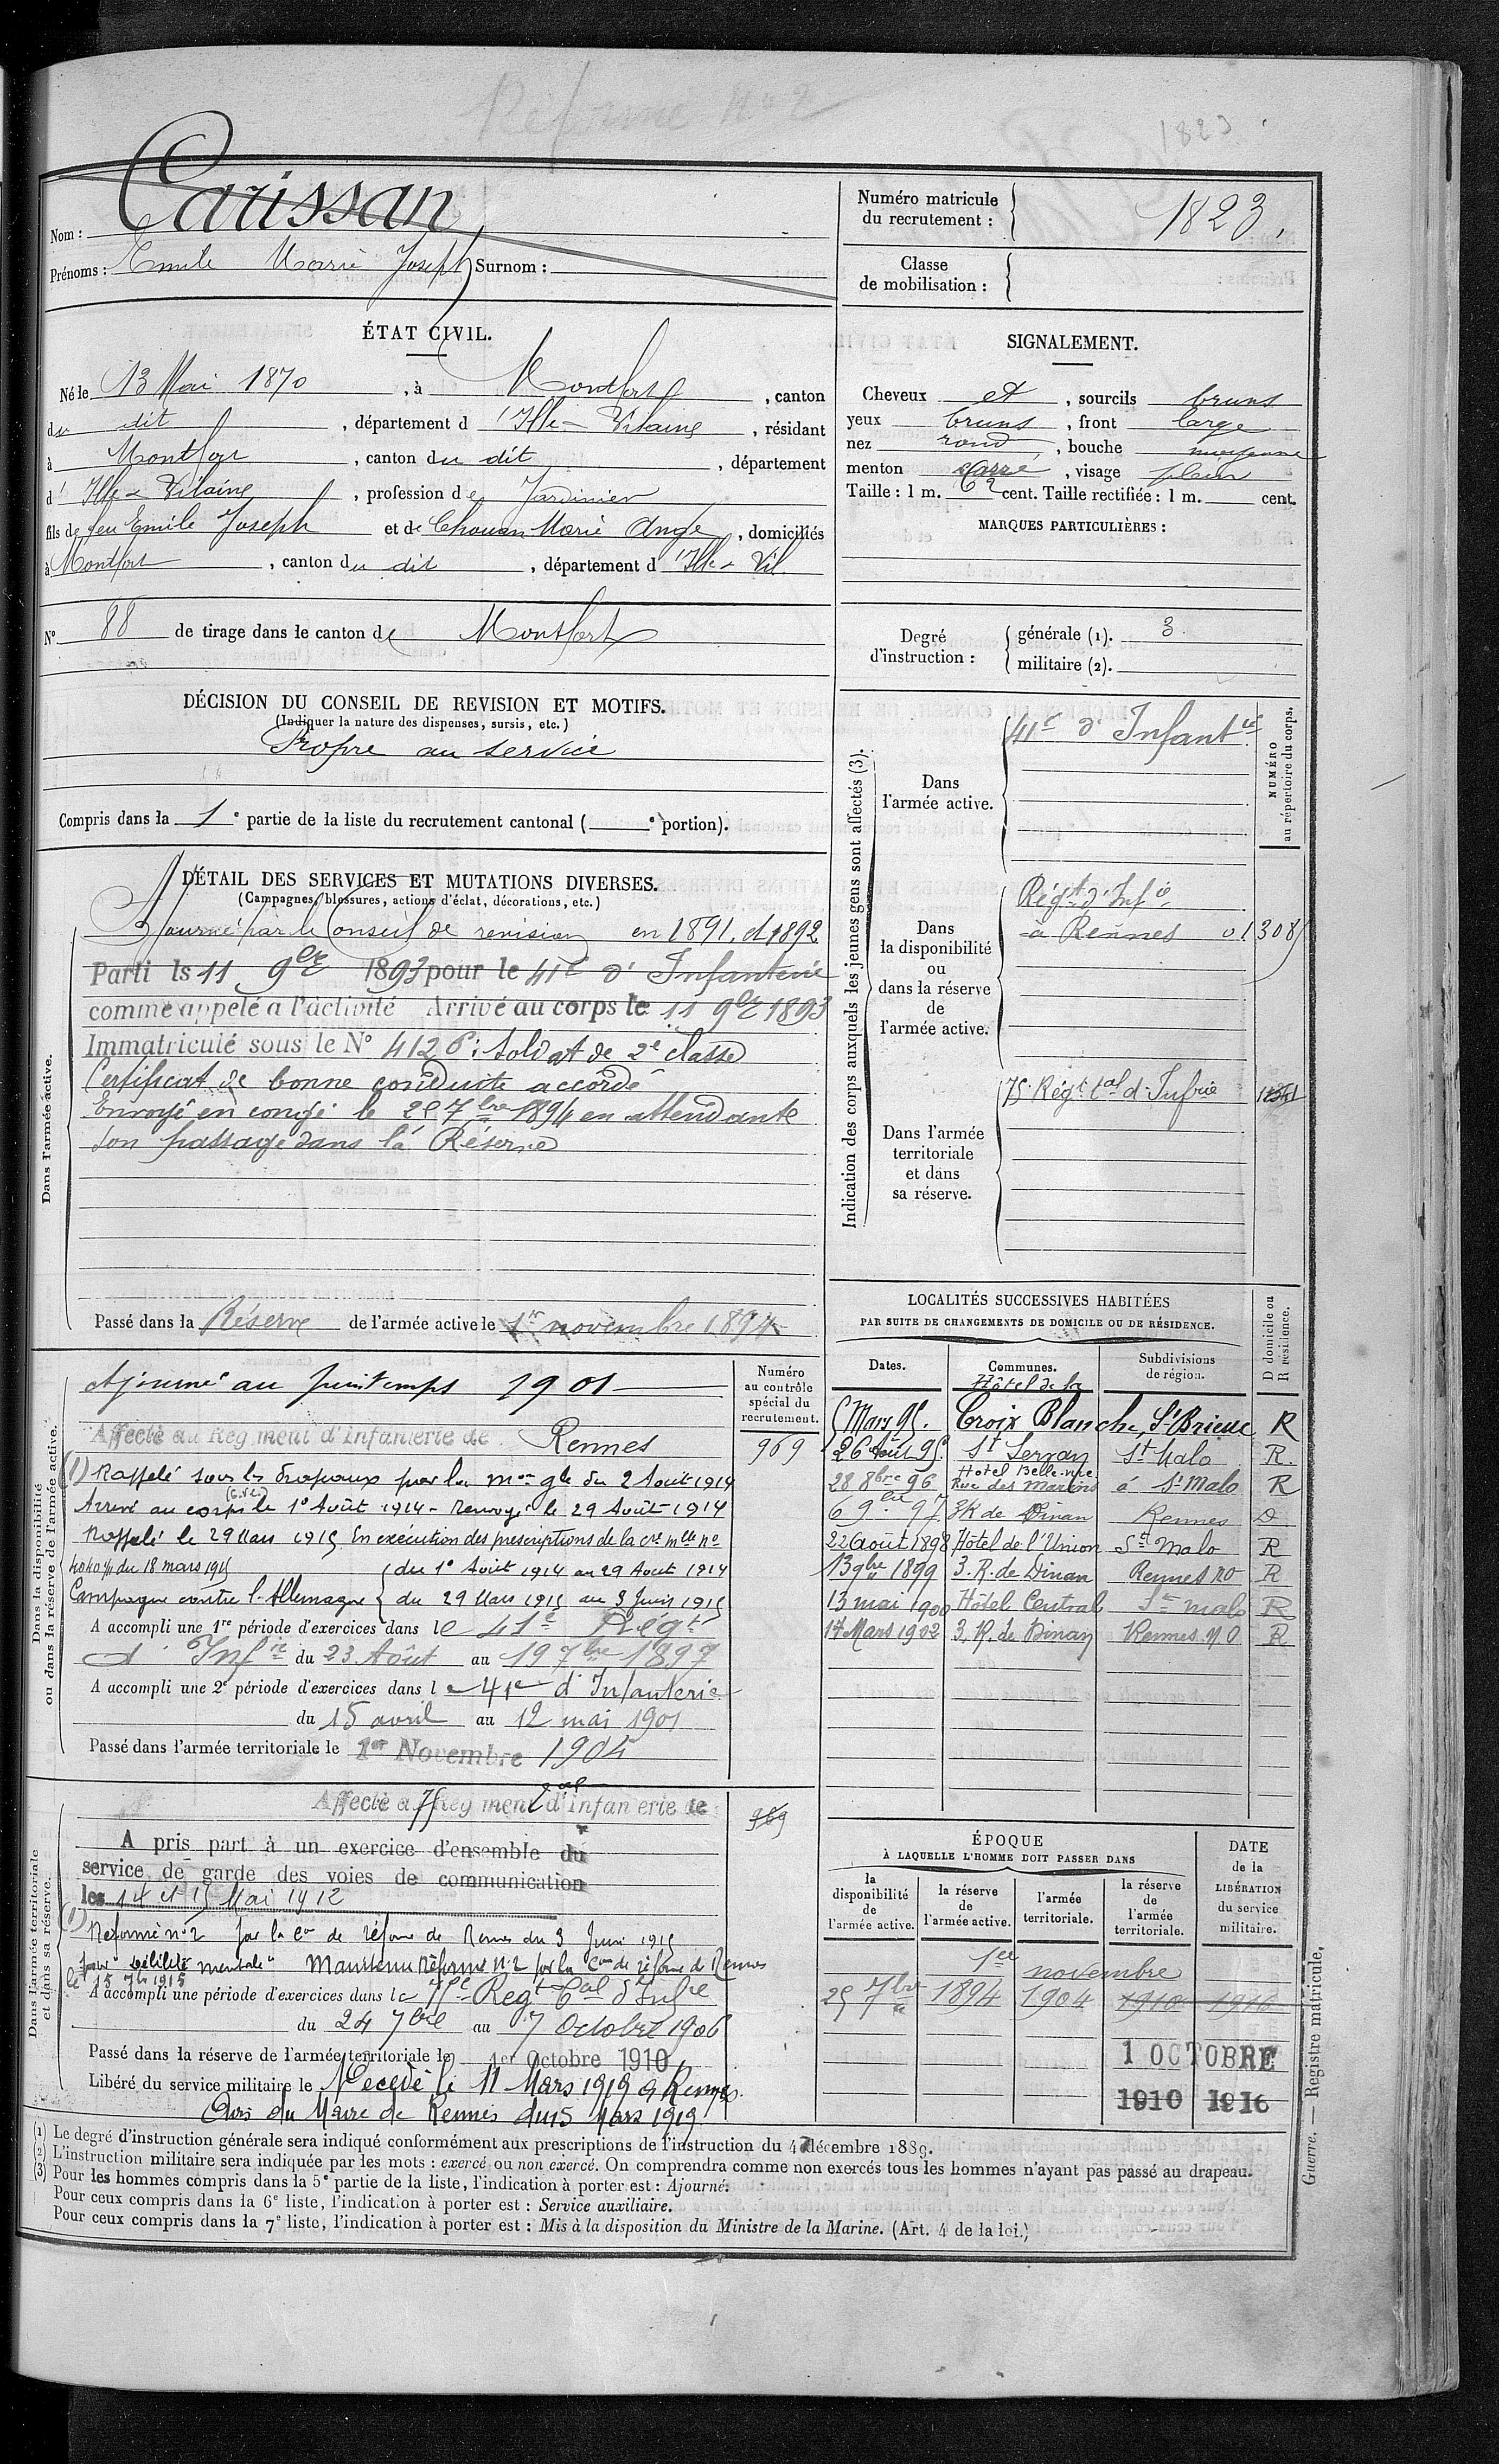 Réformé n° 2
1823
Nom : Carissan
Prénoms : Emile Marie Joseph Surnom :
Numéro matricule du recrutement : 1823.
Classe de mobilisation :
ÉTAT CIVIL.
Né le 13 Mai 1870, à Montfort, canton
du dit, département d'Ille-&-Vilaine, résidant
à Montfort, canton du dit, département
d'Ille & Vilaine, profession de Jardinier
fils de feu Emile Joseph et de Chouan Marie Ange, domiciliés
à Montfort, canton du dit, département d'Ille & Vil.
N° 88 de tirage dans le canton de Montfort
SIGNALEMENT.
Cheveux et, sourcils bruns
yeux bruns, front large
nez rond, bouche moyenne
menton carré, visage plein
Taille : 1 m. 62 cent. Taille rectifiée : 1 m. cent.
MARQUES PARTICULIÈRES :
Degré d'instruction : générale (1). 3
militaire (2).
DÉCISION DU CONSEIL DE REVISION ET MOTIFS.
(Indiquer la nature des dispenses, sursis, etc.)
Propre au service
Compris dans la 1e partie de la liste du recrutement cantonal ( e portion).
DÉTAIL DES SERVICES ET MUTATIONS DIVERSES.
(Campagnes, blessures, actions d'éclat, décorations, etc.)
Dans l'armée active.
Ajourné par le Conseil de revision en 1891, et 1892
Parti le 11 9bre 1893 pour le 41e d'Infanterie
comme appelé à l'activité Arrivé au corps le 11 9bre 1893
Immatriculé sous le N° 4126 : soldat de 2e classe
Certificat de bonne conduite accordé
Envoyé en congé le 25 7bre 1894 en attendant
son passage dans la Réserve
Passé dans la Réserve de l'armée active le 1er novembre 1894
Indication des corps auxquels les jeunes gens sont affectés (3).
NUMÉRO au répertoire du corps.
Dans l'armée active.
41e d'Infantie
Dans la disponibilité ou dans la réserve de l'armée active.
Régt d'Infie
à Rennes 01308
Dans l'armée territoriale et dans sa réserve.
75 Régt tal d'Infrie
Dans la disponibilité ou dans la réserve de l'armée active.
Numéro au contrôle spécial du recrutement.
Ajourné au printemps 1901
Affecté au Régiment d'Infanterie de Rennes 969
(1) Rappelé sous les drapeaux par la mon gle du 2 Août 1914
Arrivé au corps (G.V.C.) le 1° Août 1914 - Renvoyé le 29 Août 1914
Rappelé le 29 Mars 1915 En exécution des prescriptions de la cre mlle n°
4040 1/11 du 18 mars 1915
Campagne contre l'Allemagne { du 1° Août 1914 au 29 Août 1914
du 29 Mars 1915 au 3 Juin 1915
A accompli une 1re période d'exercices dans le 41e Régt
d'Infie du 23 Août au 19 7bre 1897
A accompli une 2e période d'exercices dans le 41e d'Infanterie
du 15 avril au 12 mai 1901
Passé dans l'armée territoriale le 1er Novembre 1904
LOCALITÉS SUCCESSIVES HABITÉES
PAR SUITE DE CHANGEMENTS DE DOMICILE OU DE RÉSIDENCE.
Dates. Communes. Subdivisions de région. D domicile ou R résidence.
Hôtel de la
Mars 95. Croix Blanche, St Brieuc R
26 Août 95 St Servan St Malo R.
Hotel Belle-vue
28 8bre 96 Rue des marins à St Malo R
6 9bre 97 3 R de Dinan Rennes D
22 Août 1898 Hôtel de l'Union St Malo R
13 9bre 1899 3. R. de Dinan Rennes NO R
13 mai 1900 Hôtel Central St malo R
14 Mars 1902 3, R. de Dinan Rennes NO R
Dans l'armée territoriale et dans sa réserve.
Affecté au 75 Régiment tal d'Infanterie de 969
A pris part à un exercice d'ensemble du
service de garde des voies de communication
les 14 et 15 Mai 1912
(1) Réformé n°2 par la con de réforme de Rennes du 3 Juin 1915
pour "débilité mentale" Maintenu Réformé N°2 par la Con de réforme de Rennes
le 15 7bre 1915
A accompli une période d'exercices dans le 75e Régt tal d'Infie
du 24 7bre au 7 Octobre 1906
Passé dans la réserve de l'armée territoriale le 1er Octobre 1910
Libéré du service militaire le Décédé le 11 Mars 1919 à Rennes.
Avis du Maire de Rennes du 15 Mars 1919
ÉPOQUE
À LAQUELLE L'HOMME DOIT PASSER DANS
DATE de la LIBÉRATION du service militaire.
la disponibilité de l'armée active. la réserve de l'armée active. l'armée territoriale. la réserve de l'armée territoriale.
1er novembre
25 7bre 1894 1904 1910 1916
1 OCTOBRE
1910 1916
(1) Le degré d'instruction générale sera indiqué conformément aux prescriptions de l'instruction du 4 décembre 1889.
(2) L'instruction militaire sera indiquée par les mots : exercé ou non exercé. On comprendra comme non exercés tous les hommes n'ayant pas passé au drapeau.
(3) Pour les hommes compris dans la 5e partie de la liste, l'indication à porter est : Ajourné.
Pour ceux compris dans la 6e liste, l'indication à porter est : Service auxiliaire.
Pour ceux compris dans la 7e liste, l'indication à porter est : Mis à la disposition du Ministre de la Marine. (Art. 4 de la loi.)
Guerre. — Registre matricule.